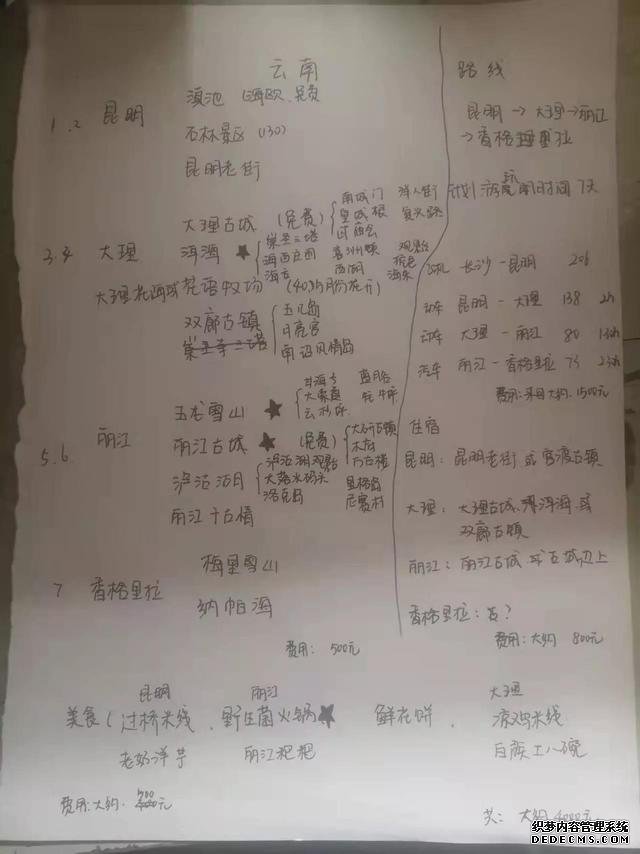 云南
1.2 昆明
滇池（海欧、免费
石林景区（130）
昆明老街
3.4 大理
大理古城（免费）
南城门 洋人街
皇城根 复兴路
洱海 ★
崇圣三塔
海西庄园 喜洲镇 观景台
西湖
大理花海或花语牧场
双廊古镇
玉几岛
月亮宫
南诏风情岛
5.6. 丽江
玉龙雪山 ★
甘海子 蓝月谷
云杉坪 牦牛坪
丽江古城 ★（免费）
大研古镇
木府
万古楼
泸沽湖
泸沽湖观景台
大落水码头 里格岛
洛克岛 尼赛村
丽江千古情
7 香格里拉
梅里雪山
纳帕海
费用： 500元
路线
昆明→大理→丽江
→香格里拉
计划游玩时间7天
飞机 长沙－昆明 206
动车 昆明－大理 138 2h
动车 大理－丽江 80
汽车 丽江－香格里拉 75
费用：来回大约：1500元
住宿
昆明：昆明老街或官渡古镇
大理：大理古城、环洱海或
双廊古镇
丽江：丽江古城或古城边上
香格里拉：
费用：大约800元
昆明 丽江 大理
美食（过桥米线、野生菌火锅★ 鲜花饼、凉鸡米线
老奶洋芋 丽江粑粑 白族土八碗
费用：大约 元
共：大约4000元
织梦内容管理系统
DEDECMS.COM